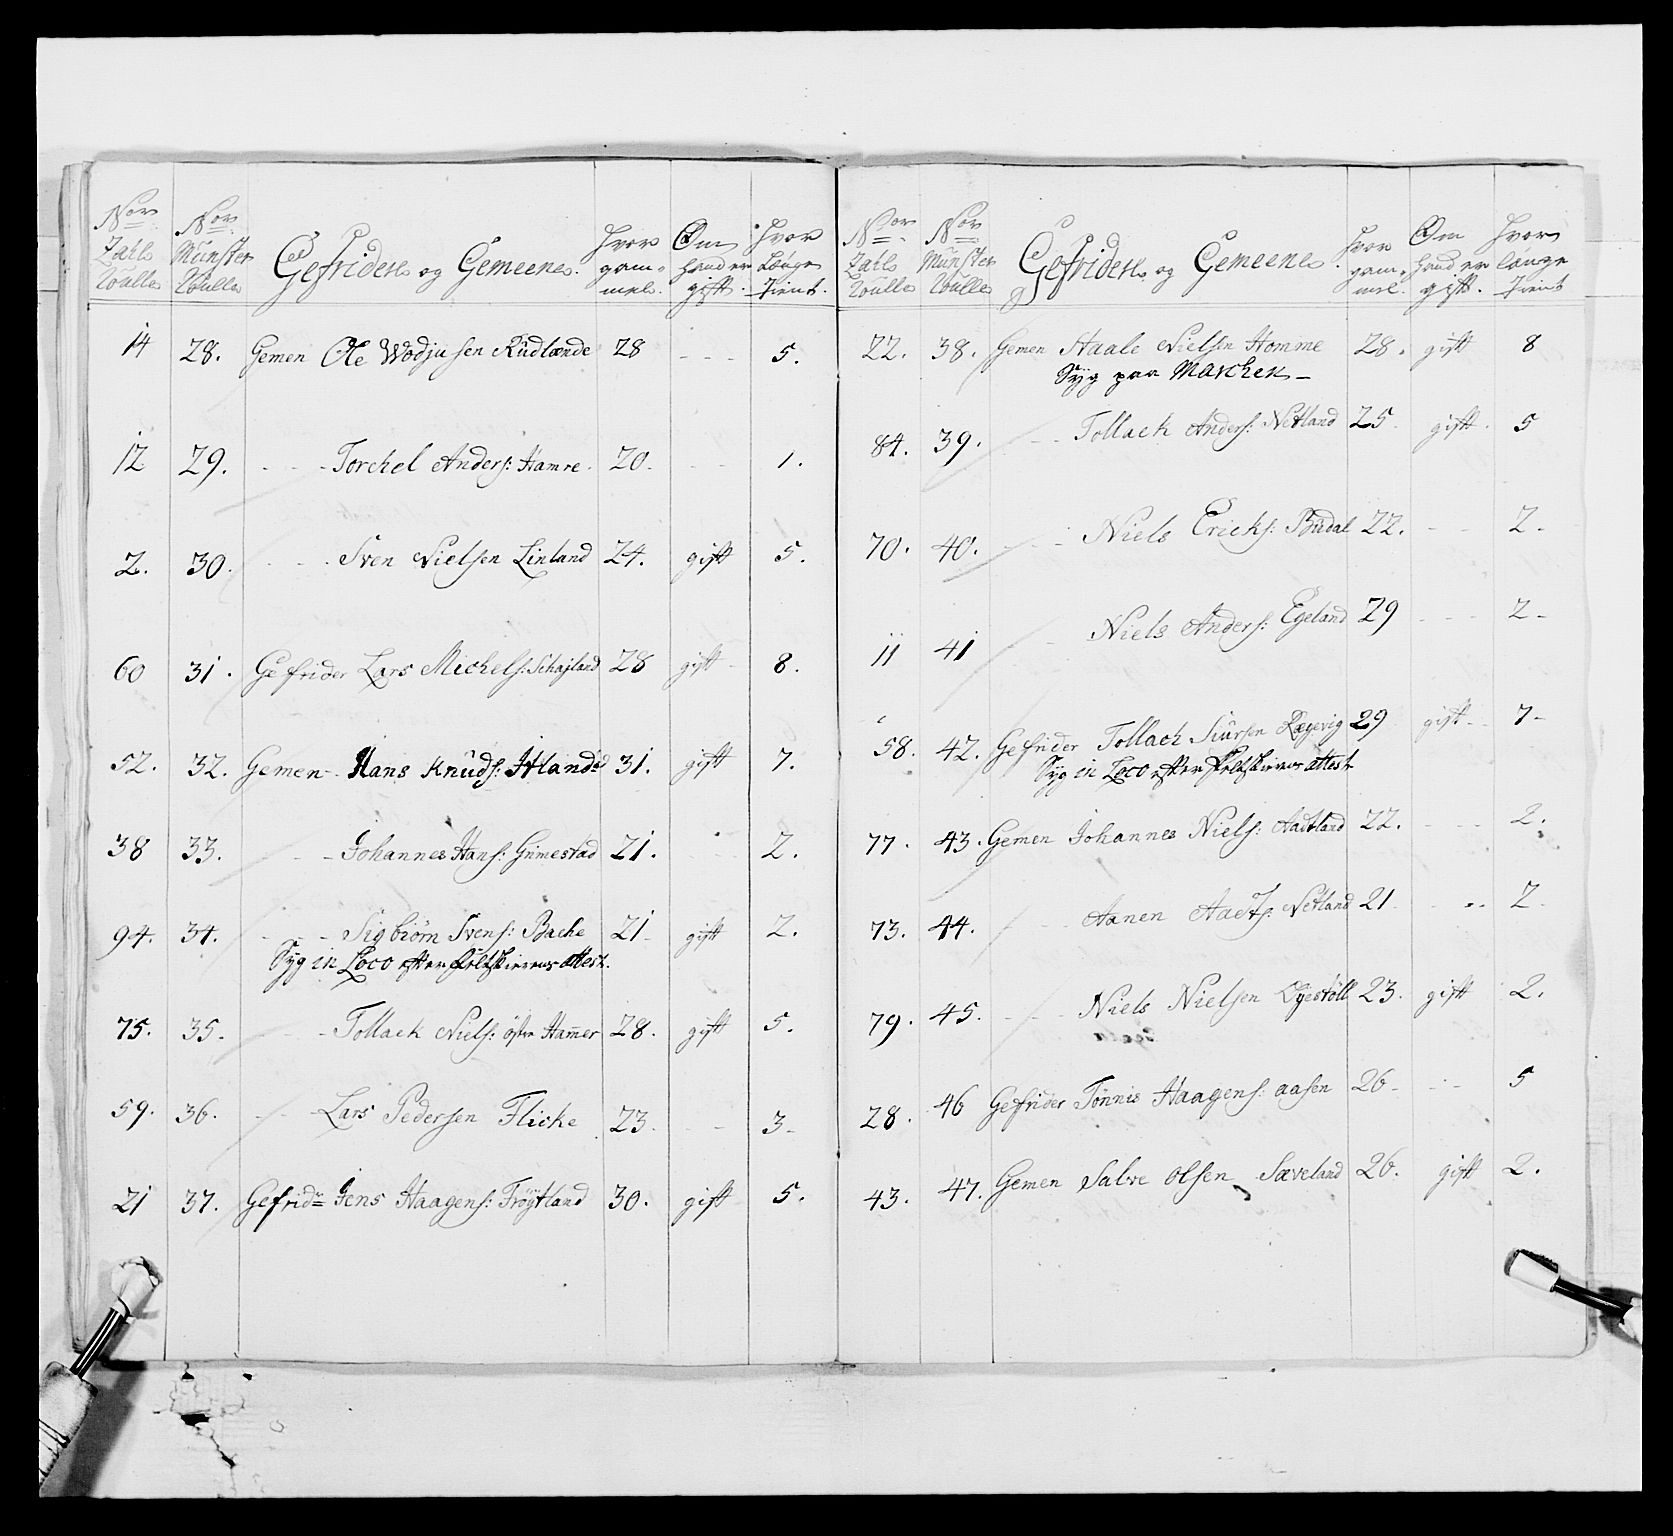 Nor Zatls Roulle | Nor Münster Roulle | Gefridere og Gemeene. | Hvor gam- mel. | Om hand er gift. | Hvor Længe Tient.
14 28. Gemen Ole Wodjusen Rüdlande 28 - - - 5.
12 29. - - - Torchel Anders: Hamre. 20. - - 1.
2. 30. - - - Sven Nielsen Linland 24. gift 5.
60 31. Gefrider Lars Michels: Schajland 28 gift 8.
52. 32. Gemen - Hans Knuds: Itland 31. gift 7.
38 33. - - Johannes Hans: Grimestad 21. - - 2.
94. 34. - - - Sigbiörn Svens: Bache 21 gift 2.
Syg in Loco efter feltskierens attest.
75. 35. - - Tollack Niels: öfre Hamer 28. gift 5.
59. 36. - - Lars Pedersen Flicke 23. - - 3.
21 37. Gefridr Jens Haagens: Fröytland 30. gift 5.
Nor Zatls Roulle | Nor Münster Roulle | Gefridere og Gemeene. | Hvor gam- mel. | Om hand er gift. | Hvor længe Tient
22. 38. Gemen Staale Nielsen Homme 28. gift 8
Syg paa Marchen -
84. 39. - - Tollack Anders: Netland 25 gift. 5
70. 40. - - Niels Ericks: Büdal 22. - - 2.
11 41 - Niels Anders: Egeland 29 - - - 2 -
58. 42. Gefrider Tollach Siursen Rægevig 29 gift - 7 -
Syg in Loco efter feltskierens attest
77. 43. Gemen Johannes Niels: Aadtland 22. - - 2.
73. 44. - Aanen Aads: Netland 21 - - 2
79. 45. - - Niels Nielsen Egestöll 23. gift 2.
28. 46 Gefrider Tönnis Haagens: aasen 26 - - 5
43. 47. Gemen Salve Olsen Sæveland 26. gift 2.